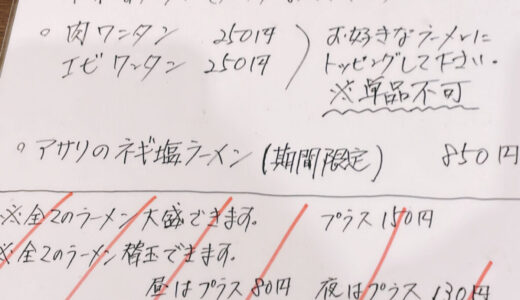 ○肉ワンタン 250円
エビワンタン 250円
お好きなラーメンに
トッピングして下さい。
※単品不可
○アサリのネギ塩ラーメン(期間限定) 850円
※全てのラーメン大盛できます。 プラス150円
※全てのラーメン替玉できます。
昼はプラス80円 夜はプラス130円